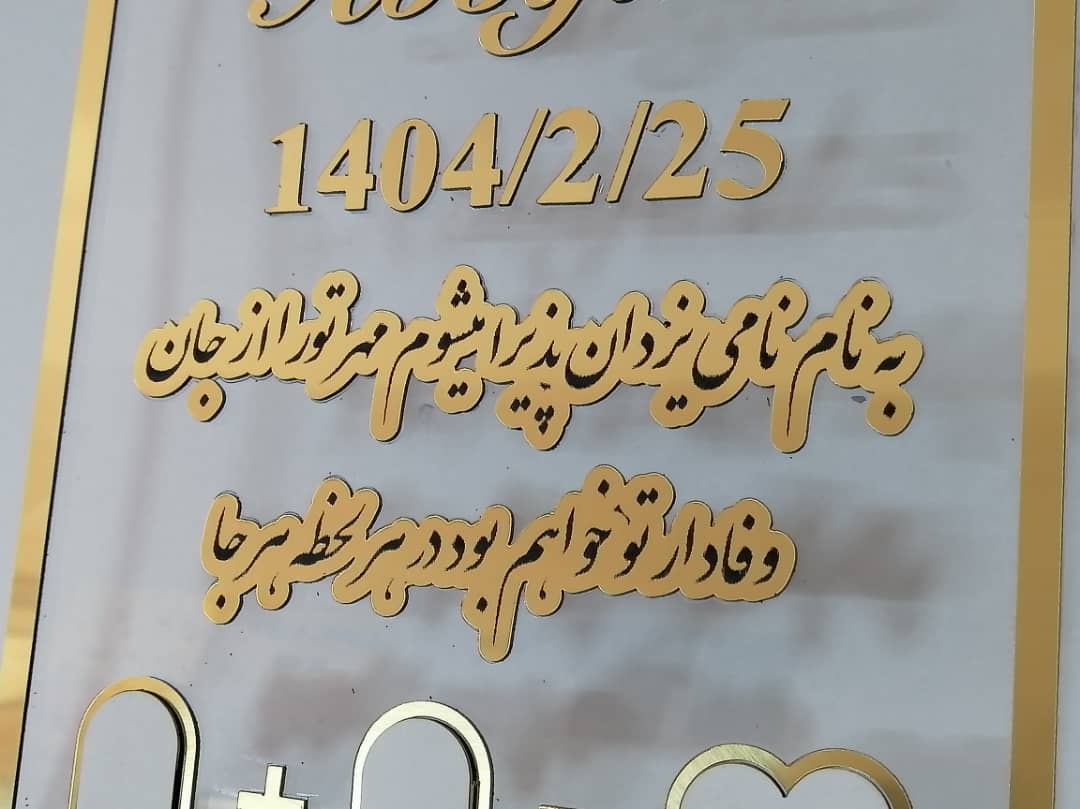 1404/2/25
به نام نامی یزدان پذیرا میشوم مهر تو را از جان
وفادار تو خواهم بود در هر لحظه هر جا